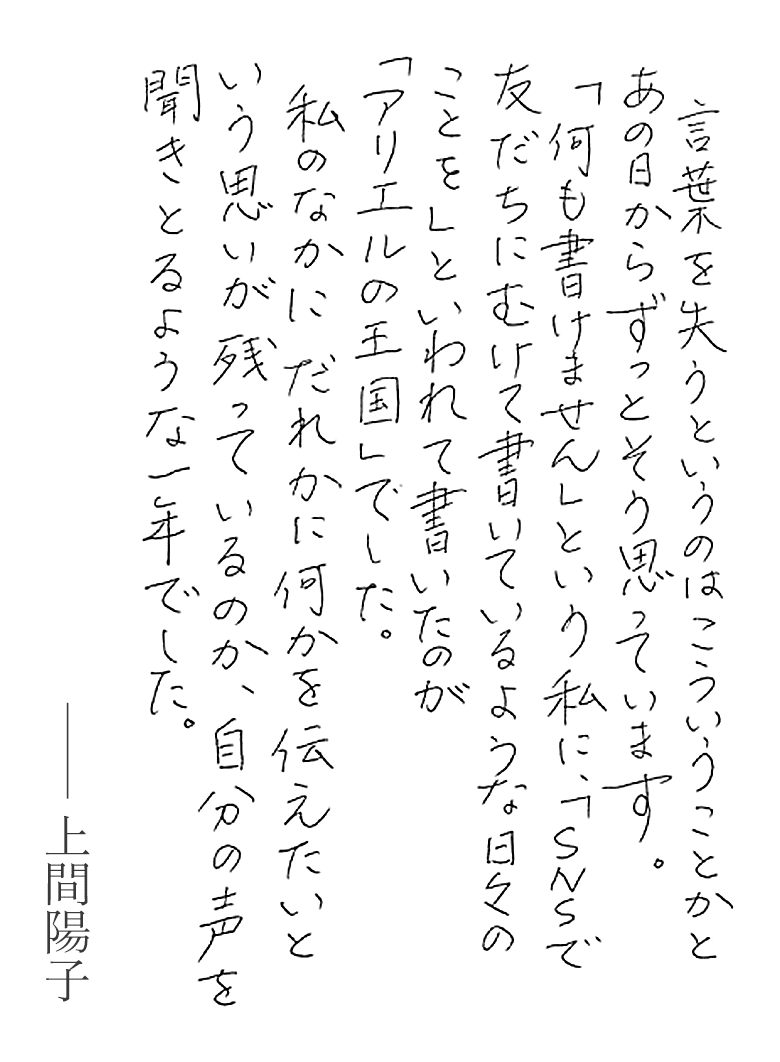 言葉を失うというのはこういうことかと
あの日からずっとそう思っています。
「何も書けません」という私に、「SNSで
友だちにむけて書いているような日々の
ことを」といわれて書いたのが
「アリエルの王国」でした。
私のなかに だれかに何かを伝えたいと
いう思いが残っているのか、自分の声を
聞きとるような一年でした。
――上間陽子